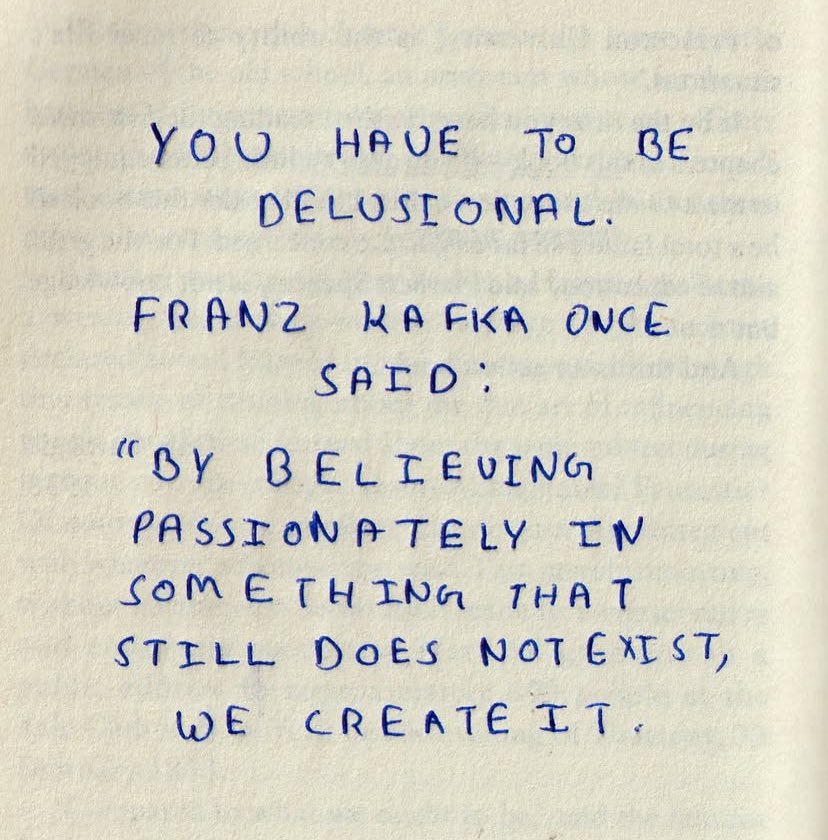 YOU HAVE TO BE
DELUSIONAL.
FRANZ KAFKA ONCE
SAID:
"BY BELIEVING
PASSIONATELY IN
SOMETHING THAT
STILL DOES NOT EXIST,
WE CREATE IT.